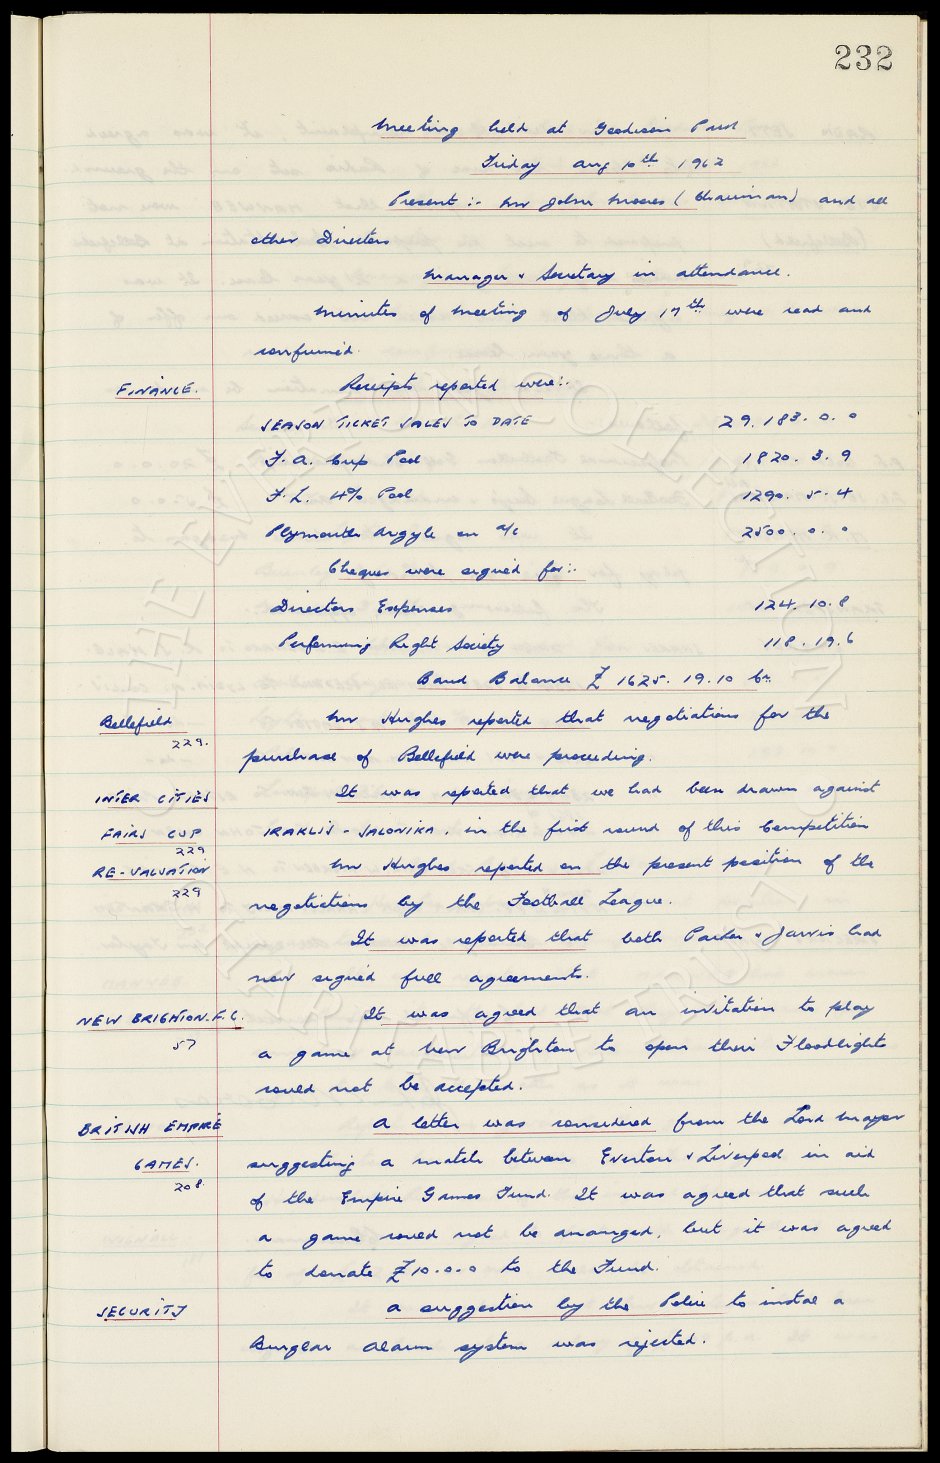 232
Meeting held at Goodison Park
Friday Aug 10th 1962
Present :- Mr John Moores (Chairman) and all
other Directors
Manager & Secretary in attendance.
Minutes of Meeting of July 17th were read and
confirmed.
FINANCE. Receipts reported were:-
SEASON TICKET SALES TO DATE 29.183.0.0
F.A. Cup Pool 1820.3.9
F.L. 4% Pool 1290.5.4
Plymouth Argyle on a/c 2500.0.0
Cheques were signed for:-
Directors Expenses 124.10.8
Performing Right Society 118.19.6
Bank Balance £1625.19.10 Cr.
Bellefield Mr Hughes reported that negotiations for the
229.
purchase of Bellefield were proceeding.
INTER CITIES It was reported that we had been drawn against
FAIRS CUP IRAKLIS - SALONIKA. in the first round of this Competition
229
RE-VALUATION Mr Hughes reported on the present position of the
229
negotiations by the Football League.
It was reported that both Parker & Jarvis had
now signed full agreements.
NEW BRIGHTON.F.C. It was agreed that an invitation to play
57
a game at New Brighton to open their Floodlights
could not be accepted.
BRITISH EMPIRE A letter was considered from the Lord Mayor
GAMES. suggesting a match between Everton & Liverpool in aid
208.
of the Empire Games Fund. It was agreed that such
a game could not be arranged, but it was agreed
to donate £10.0.0 to the Fund.
SECURITY A suggestion by the Police to instal a
Burglar Alarm system was rejected.
THE EVERTON COLLECTION
CHARITABLE TRUST